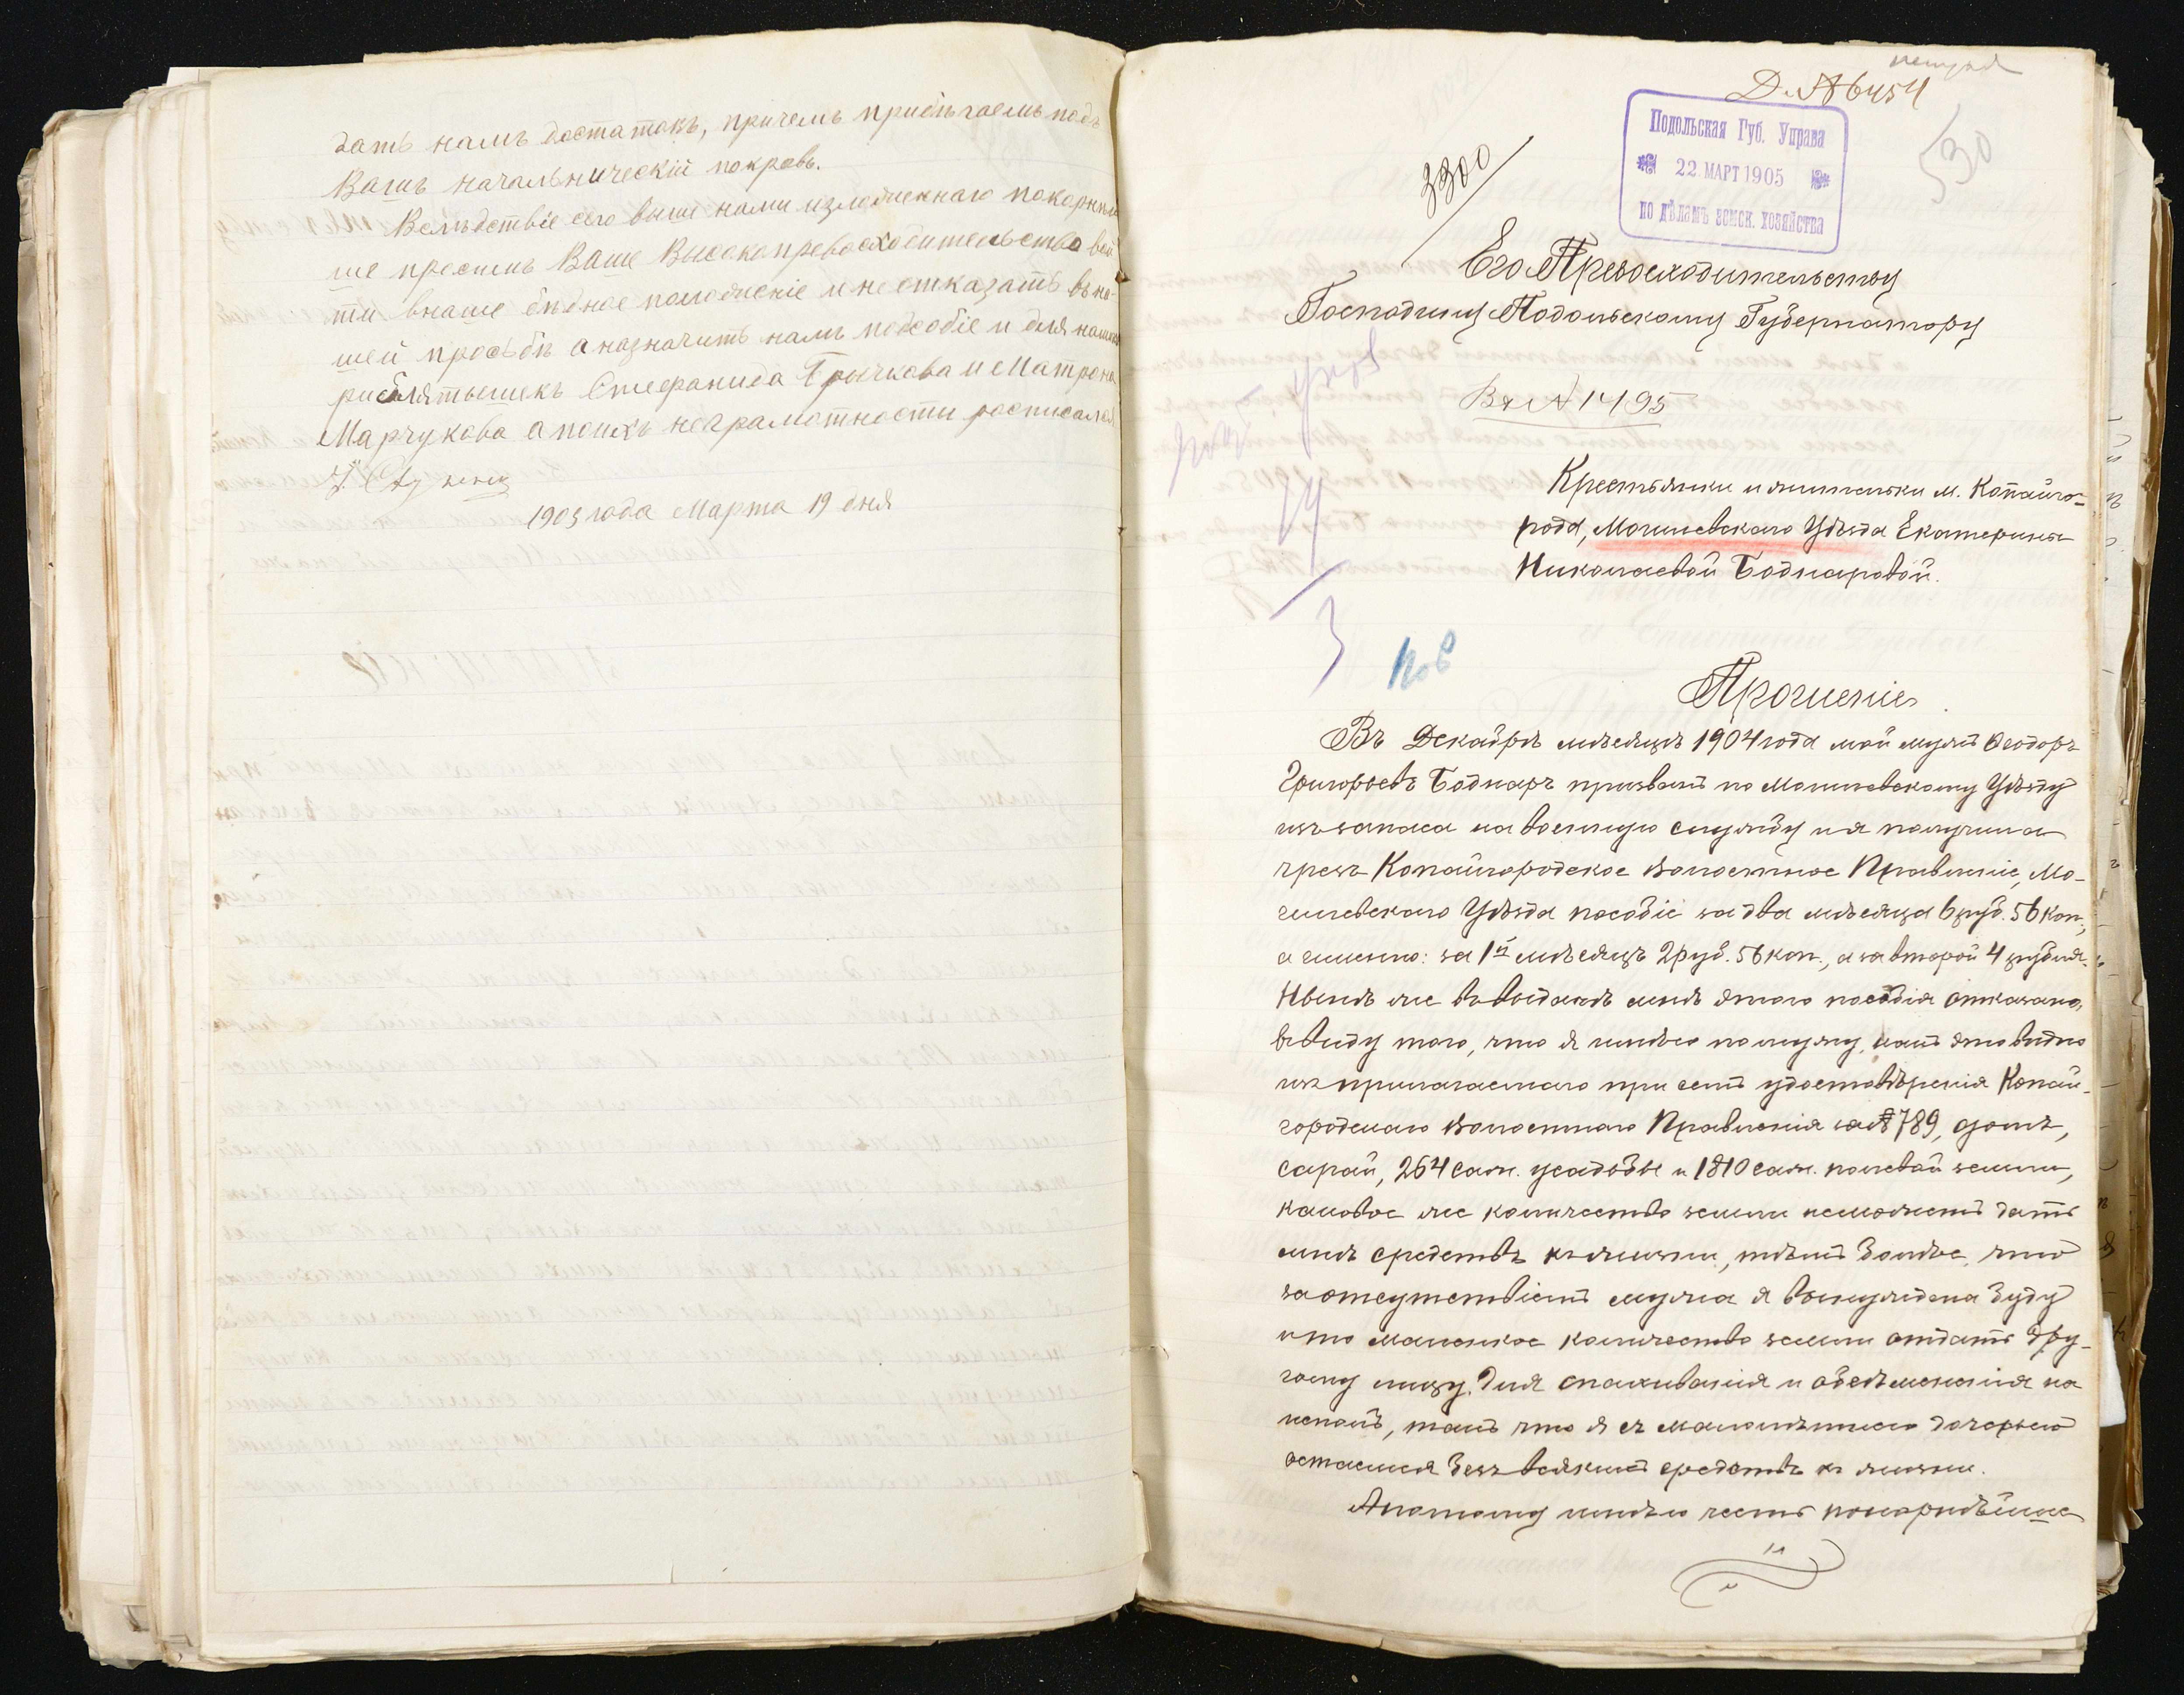 дать намъ достатокъ, причемъ прибѣгаемъ подъ
Вашъ начальническій покровъ.
Вслѣдствіе сего выше нами изложеннаго покорнѣй
ше просимъ Ваше Высокопревосходительство вой
ти внаше бѣдное положеніе и не отказать въ на-
шей просьбѣ а назначить намъ пособіе и для нашихъ
Стефанида Грычкова и Матрона
Марчукова а поихъ неграмотности росписался
1905 года Марта 19 дня
Д. № 6454
Подольская Губ. Управа
22 МАРТ 1905
по дѣламъ земск. хозяйства
530
3300
Его Превосходительству
Господину Подольскому Губернатору
Вх № 1495
19
3
Крестьянки и жительки м. Копайго-
рода, Могилевскаго Уѣзда Екатерины
Николаевой Боднаровой.
Прошеніе
Въ Декабрѣ мѣсяцѣ 1904 года мой мужъ Ѳеодоръ
Григорьевъ Боднаръ призванъ по Могилевскому Уѣзду
изъ запаса на военную службу и я получила
чрезъ Копайгородское Волостное Правленіе, Мо-
гилевскаго Уѣзда пособіе за два мѣсяца 6 руб. 56 коп.,
а именно: за 1й мѣсяцъ 2 руб. 56 коп., а за второй 4 рубля.
Нынѣ же въ выдачѣ мнѣ этого пособія отказано,
ввиду того, что я имѣю по мужу, какъ это видно
изъ прилагаемаго при семъ удостовѣренія Копай-
городскаго Волостнаго Правленія за № 789, домъ,
сарай, 264 саж. усадьбы и 1810 саж. полевой земли,
каковое же количество земли неможетъ дать
мнѣ средствъ къ жизни, тѣмъ болѣе, что
за отсутствіемъ мужа я вынуждена буду
и то маленькое количество земли отдать дру-
гому лицу для спахиванія и обсѣмененія на
исполъ, такъ что я съ малолѣтнею дочерью
остаемся безъ всякихъ средствъ къ жизни.
Апотому имѣю честь покорнѣйше